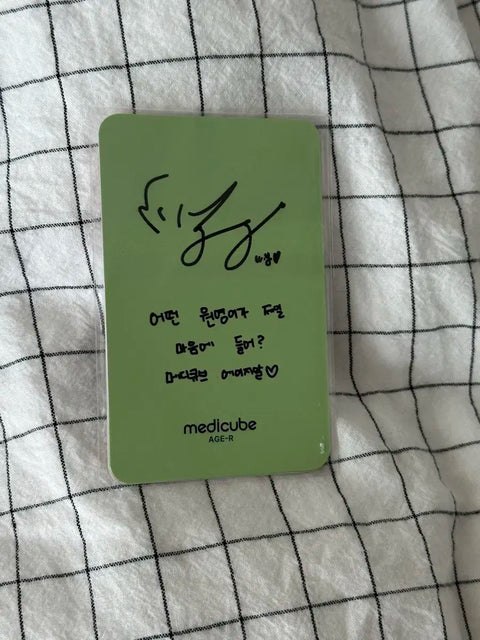 어떤 원영이가 제일
마음에 들어?
메디큐브 에이지알♡
medicube
AGE-R